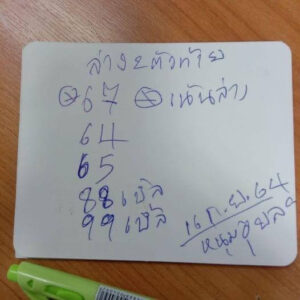 ล่าง2ตัวท้าย
67 เน้นล่าง
64
65
88 เบิ้ล
99 เบิ้ล
16 ก.พ.64
หนุ่มอุบล